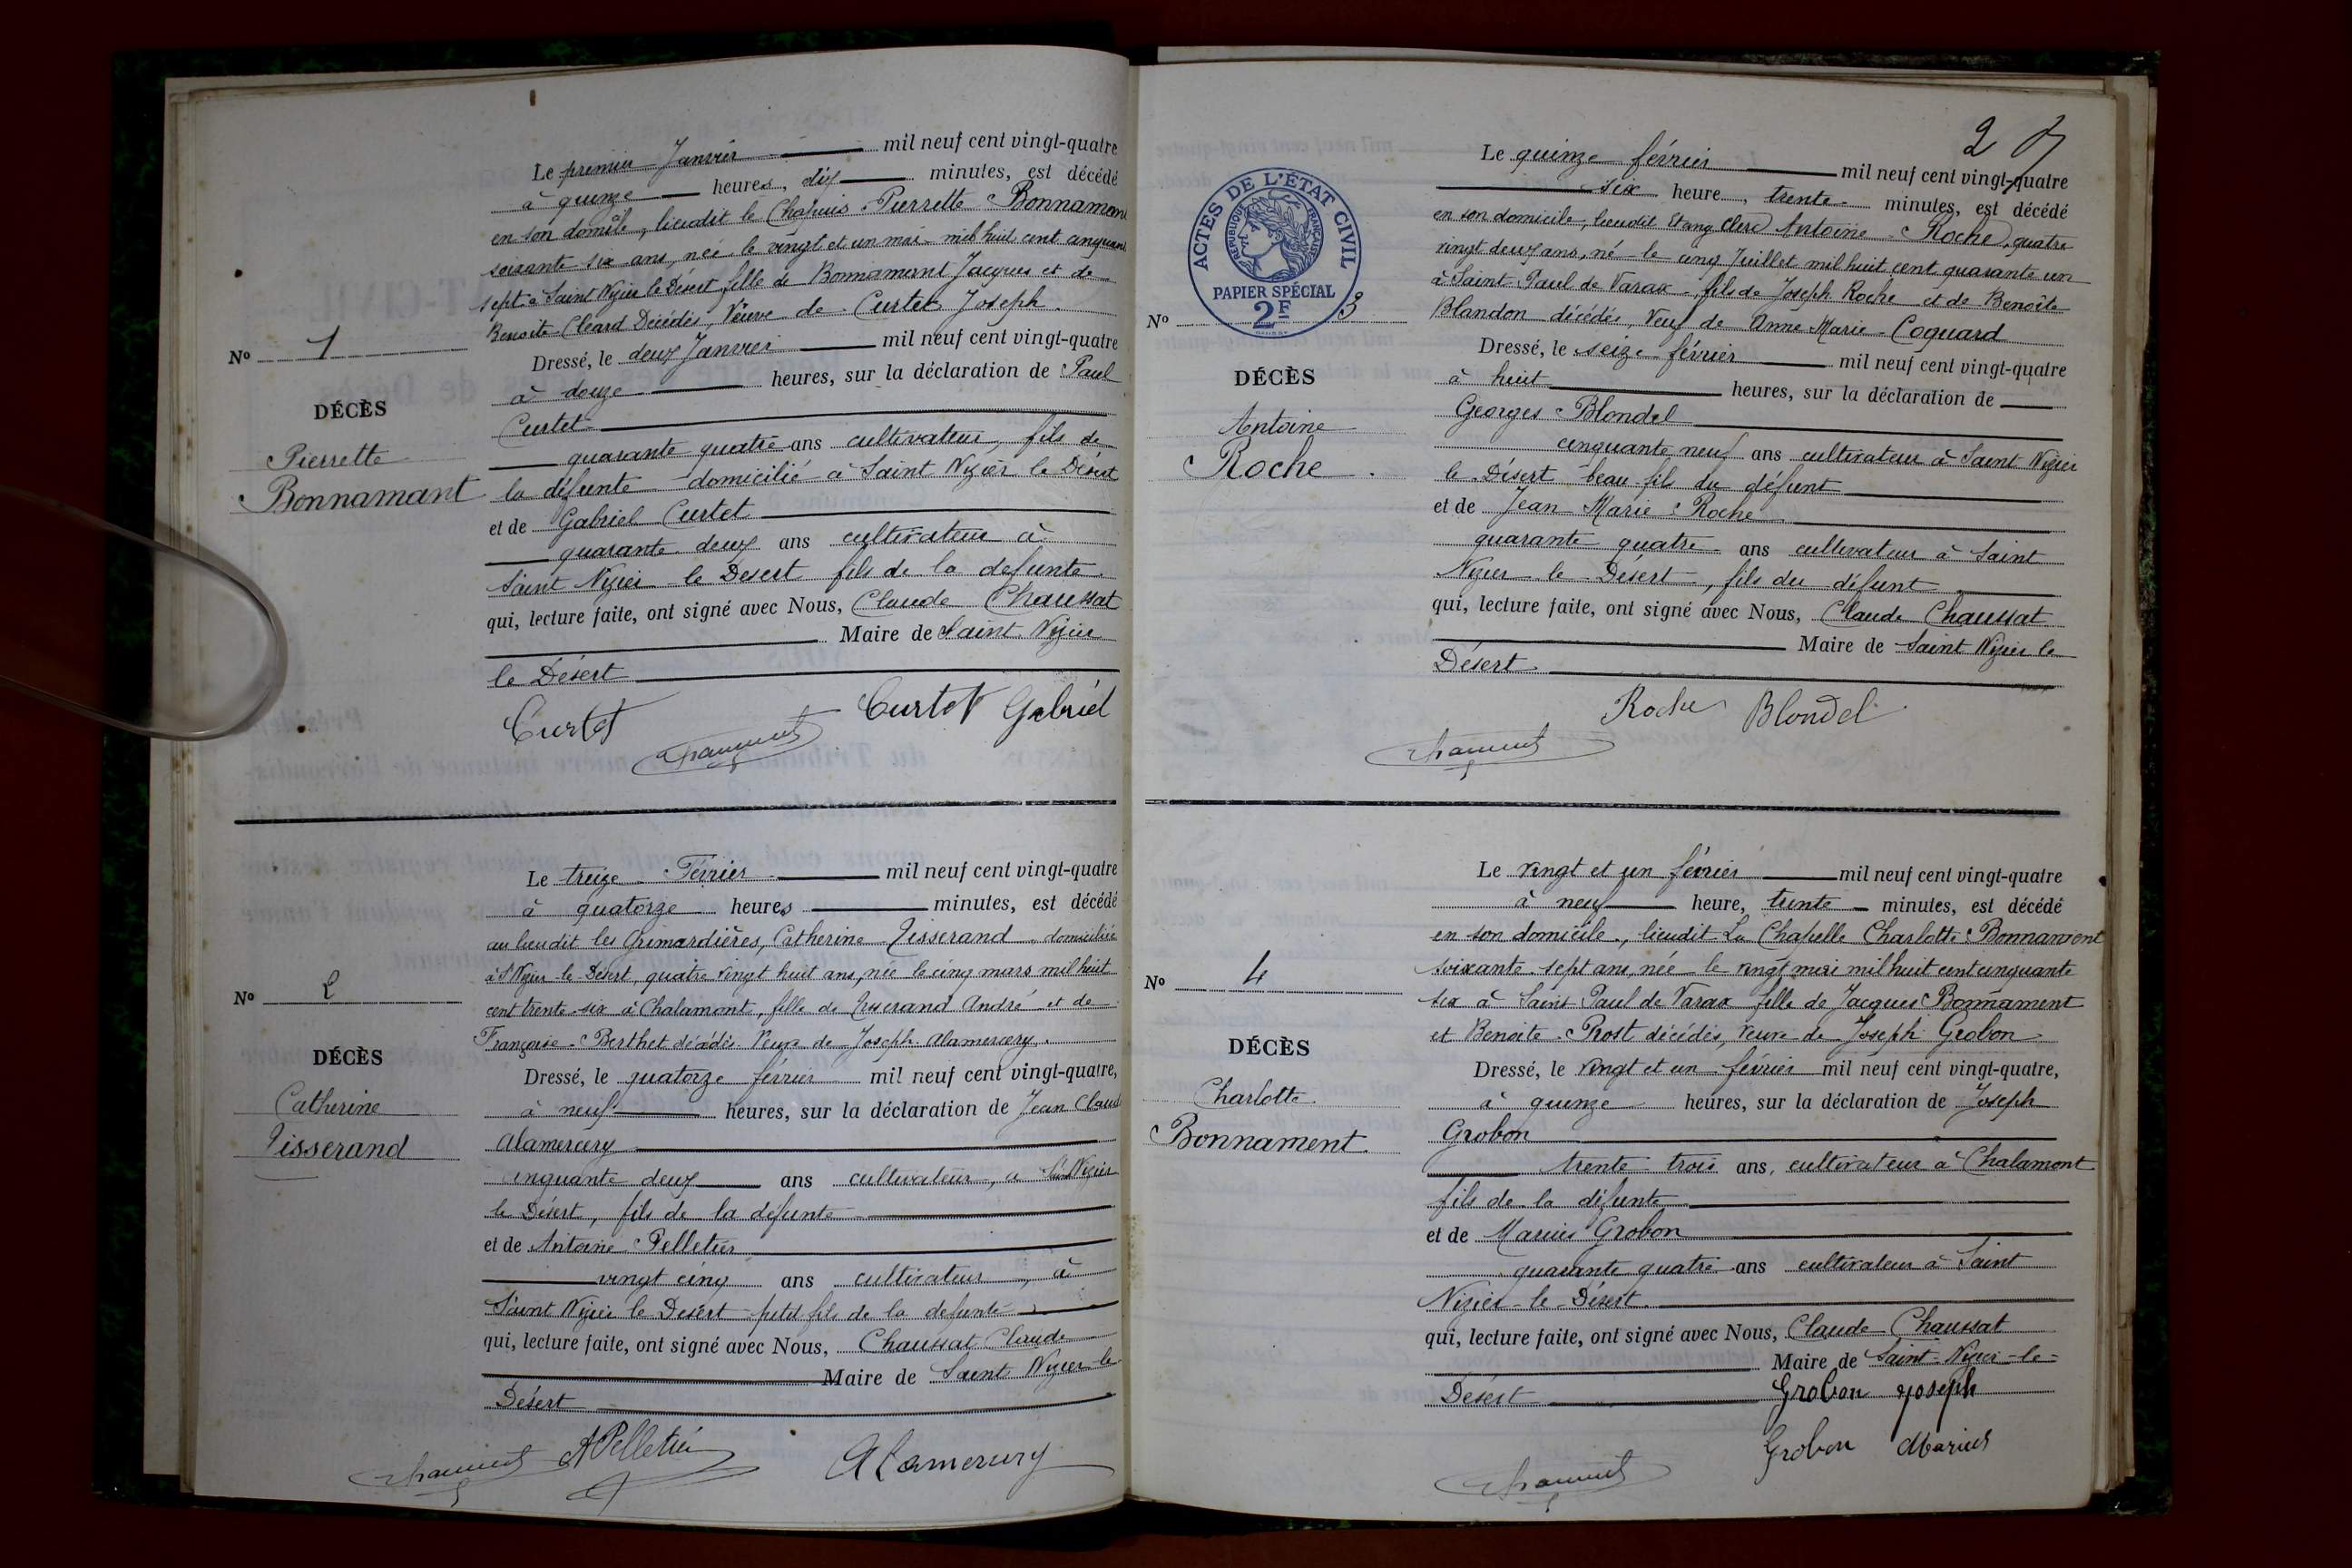 Le premier Janvier mil neuf cent vingt-quatre
à quinze heures, dix minutes, est décédé
en son domicile, lieudit le Chapuis Pierrette Bonnamant
soixante six ans, née le vingt et un mai mil huit cent cinquante
sept à Saint Nizier le Désert fille de Bonnamant Jacques et de
Benoite Cléard Décédés, Veuve de Curtet Joseph.
Nº 1
DÉCÈS
Pierrette
Bonnamant
Dressé, le deux Janvier mil neuf cent vingt-quatre
à douze heures, sur la déclaration de Paul
Curtet
quarante quatre ans cultivateur, fils de
la défunte domicilié à Saint Nizier le Désert
et de Gabriel Curtet
quarante deux ans cultivateur à
Saint Nizier le Desert fils de la defunte.
qui, lecture faite, ont signé avec Nous, Claude Chaussat
Maire de Saint Nizier
le Désert
Curtet
Curtet Gabriel
Le treize Février mil neuf cent vingt-quatre
à quatorze heures minutes, est décédé
au lieudit les Grimardières, Catherine Tisserand domiciliée
à St Nizier le Désert, quatre vingt huit ans, née le cinq mars mil huit
cent trente six à Chalamont, fille de Tisserand André et de
Françoise Berthet décédés Veuve de Joseph Alamercery.
Nº 2
DÉCÈS
Catherine
Tisserand
Dressé, le quatorze février mil neuf cent vingt-quatre,
à neuf heures, sur la déclaration de Jean Claude
Alamercery
cinquante deux ans cultivateur, à Saint Nizier
le Désert, fils de la défunte
et de Antoine Pelletier
vingt cinq ans cultivateur, à
Saint Nizier le Desert petit fils de la defunte
qui, lecture faite, ont signé avec Nous, Chaussat Claude
Maire de Saint Nizier le
Désert
A Pelletier
Alamercery
2
Le quinze février mil neuf cent vingt-quatre
six heure, trente minutes, est décédé
en son domicile, lieudit Etang Clerc Antoine Roche, quatre
vingt deux ans, né le cinq Juillet mil huit cent quarante un
à Saint Paul de Varax, fils de Joseph Roche et de Benoîte
Blandon décédés, Veuf de Anne Marie Coquard
ACTES DE L'ÉTAT CIVIL
RÉPUBLIQUE FRANÇAISE
PAPIER SPÉCIAL
2F
Nº 3
DÉCÈS
Antoine
Roche
Dressé, le seize février mil neuf cent vingt-quatre
à huit heures, sur la déclaration de
Georges Blondel
cinquante neuf ans cultivateur à Saint Nizier
le Désert beau fils du défunt
et de Jean Marie Roche
quarante quatre ans cultivateur à Saint
Nizier le Désert, fils du défunt
qui, lecture faite, ont signé avec Nous, Claude Chaussat
Maire de Saint Nizier le
Désert
Roche Blondel
Le vingt et un février mil neuf cent vingt-quatre
à neuf heure, trente minutes, est décédé
en son domicile, lieudit La Chapelle Charlotte Bonnament
soixante sept ans, née le vingt mai mil huit cent cinquante
six à Saint Paul de Varax fille de Jacques Bonnament
et Benoite Prost décédés, veuve de Joseph Grobon
Nº 4
DÉCÈS
Charlotte
Bonnament
Dressé, le vingt et un février mil neuf cent vingt-quatre,
à quinze heures, sur la déclaration de Joseph
Grobon
trente trois ans, cultivateur à Chalamont
fils de la défunte
et de Marius Grobon
quarante quatre ans cultivateur à Saint
Nizier-le-Désert.
qui, lecture faite, ont signé avec Nous, Claude Chaussat
Maire de Saint-Nizier-le-
Désert
Grobon Joseph
Grobon Marius